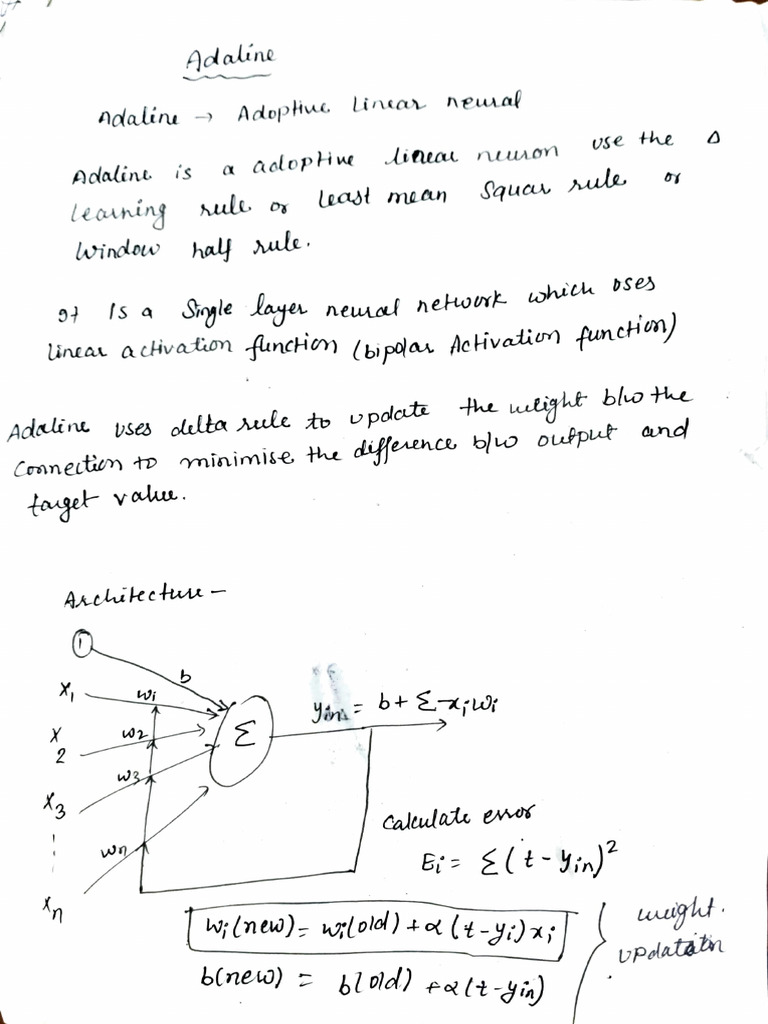 Adaline
Adaline → Adoptive Linear neural
Adaline is a adoptive linear neuron use the Δ
learning rule or least mean Squar rule or
Window half rule.
It Is a Single layer neural network which uses
linear activation function (bipolar Activation function)
Adaline uses delta rule to update the weight b/w the
Connection to minimise the difference b/w output and
target value.
Architecture –
1
b
x1
w1
yin = b + Σ xiwi
Σ
x2
w2
w3
x3
Calculate error
Ei = Σ(t - yin)²
wn
xn
wi(new) = wi(old) + α(t - yi)xi
weight.
updatation
b(new) = b(old) + α(t - yin)